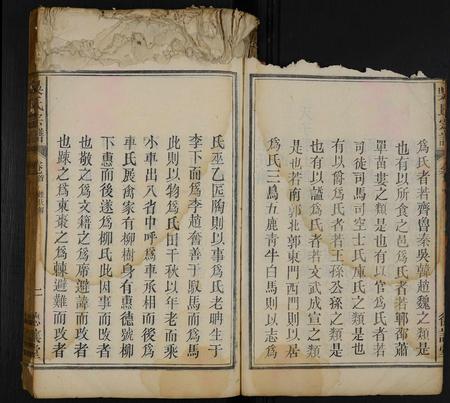 爲氏者若齊魯秦吳韓趙魏之類是
也有以所食之邑爲氏者若鄆鄀蕭
單苗婁之類是也有以官爲氏者若
司徒司馬司空士氏庫氏之類是也
有以爵爲氏者若王孫公孫之類是
也有以謚爲氏者若文武成宣之類
是也若南郭北郭東門西門則以居
爲氏三烏五鹿青牛白馬則以志爲
氏巫乙匠陶則以事爲氏老聃生于
李下而爲李趙奢善于馭馬而爲馬
此則以物爲氏田千秋以年老而乘
小車出入省中呼爲車丞相而後爲
車氏展禽家有柳樹身有惠德號柳
下惠而後遂爲柳氏此因事而改者
也敬之爲文籍之爲席避諱而改者
也踈之爲束棗之爲棘避難而改者
吳氏宗譜